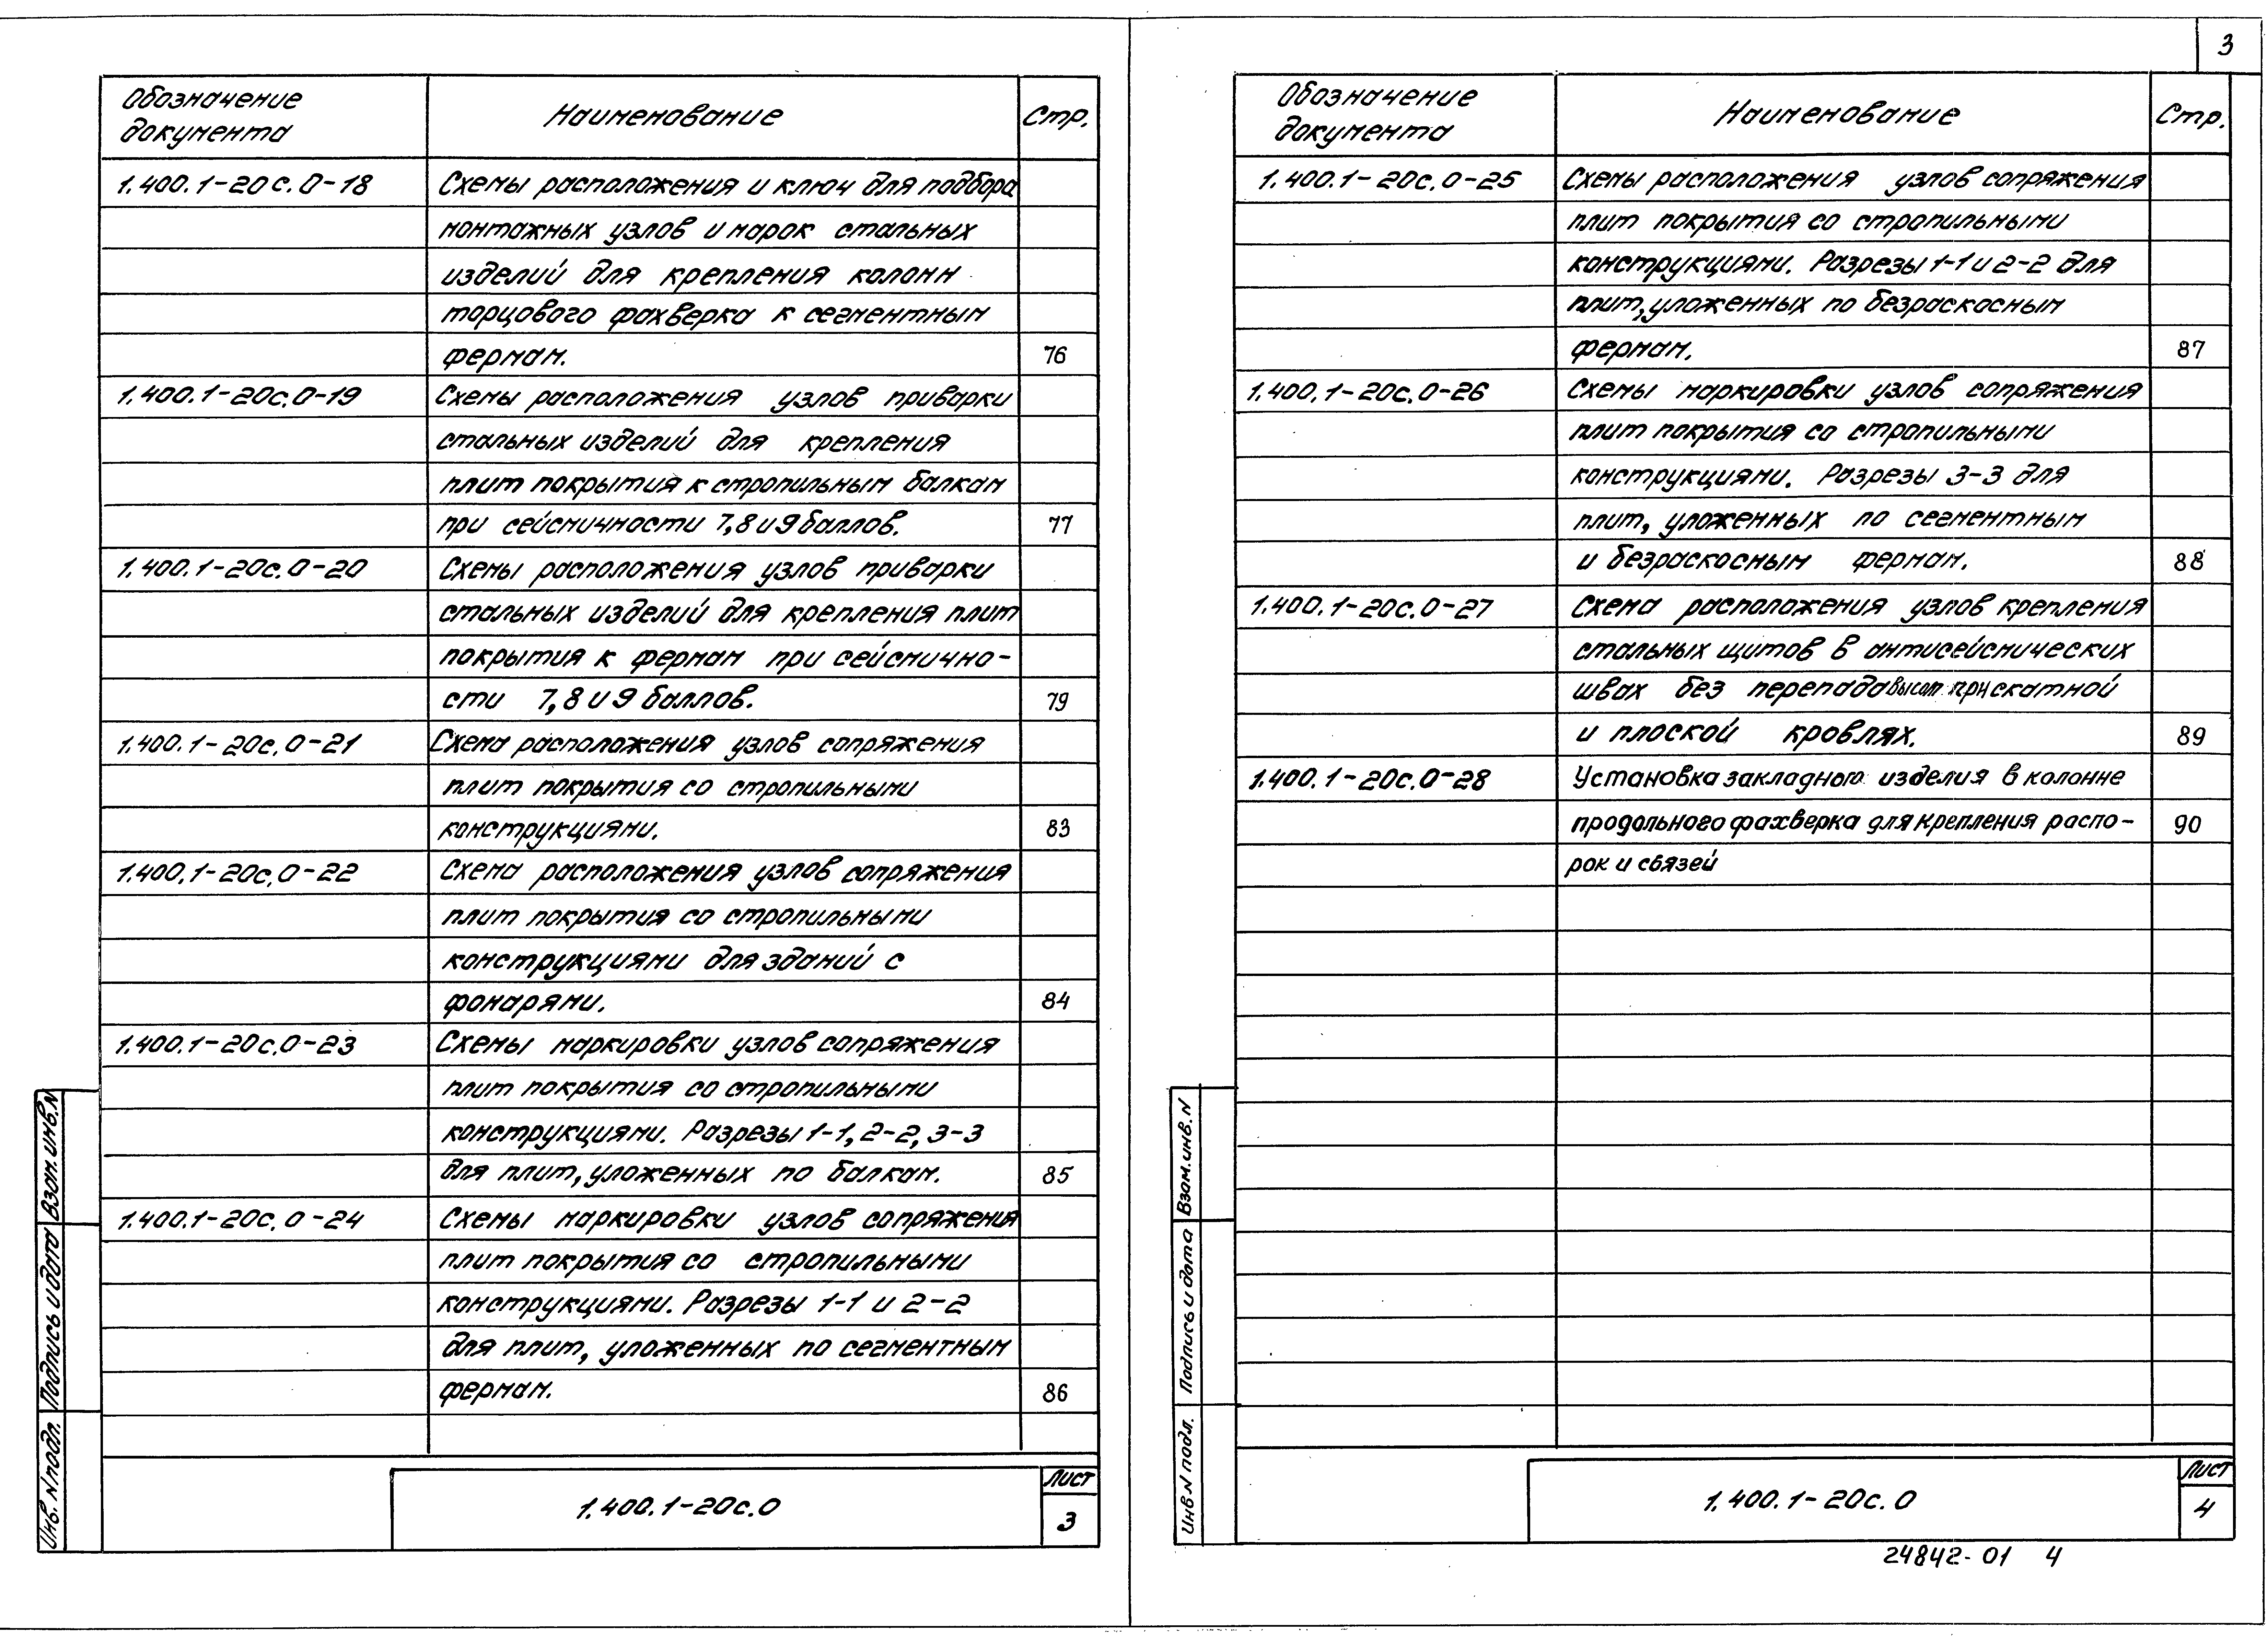 3
Обозначение документа
Наименование
Стр.
1.400.1-20с.0-18
Схемы расположения и ключ для подбора
монтажных узлов и марок стальных
изделий для крепления колонн
торцового фахверка к сегментным
фермам.
76
1.400.1-20с.0-19
Схемы расположения узлов приварки
стальных изделий для крепления
плит покрытия к стропильным балкам
при сейсмичности 7,8 и 9 баллов.
77
1.400.1-20с.0-20
Схемы расположения узлов приварки
стальных изделий для крепления плит
покрытия к фермам при сейсмично-
сти 7,8 и 9 баллов.
79
1.400.1-20с.0-21
Схема расположения узлов сопряжения
плит покрытия со стропильными
конструкциями.
83
1.400.1-20с.0-22
Схема расположения узлов сопряжения
плит покрытия со стропильными
конструкциями для зданий с
фонарями.
84
1.400.1-20с.0-23
Схемы маркировки узлов сопряжения
плит покрытия со стропильными
конструкциями. Разрезы 1-1, 2-2, 3-3
для плит, уложенных по балкам.
85
1.400.1-20с.0-24
Схемы маркировки узлов сопряжения
плит покрытия со стропильными
конструкциями. Разрезы 1-1 и 2-2
для плит, уложенных по сегментным
фермам.
86
Инв. N подл.
Подпись и дата
Взам. инв. N
1.400.1-20с.0
Лист
3
Обозначение документа
Наименование
Стр.
1.400.1-20с.0-25
Схемы расположения узлов сопряжения
плит покрытия со стропильными
конструкциями. Разрезы 1-1 и 2-2 для
плит, уложенных по безраскосным
фермам.
87
1.400.1-20с.0-26
Схемы маркировки узлов сопряжения
плит покрытия со стропильными
конструкциями. Разрезы 3-3 для
плит, уложенных по сегментным
и безраскосным фермам.
88
1.400.1-20с.0-27
Схема расположения узлов крепления
стальных щитов в антисейсмических
швах без перепада высот при скатной
и плоской кровлях.
89
1.400.1-20с.0-28
Установка закладного изделия в колонне
продольного фахверка для крепления распо-
90
рок и связей
Инв N подл.
Подпись и дата
Взам. инв. N
1.400.1-20с.0
Лист
4
24842-01 4